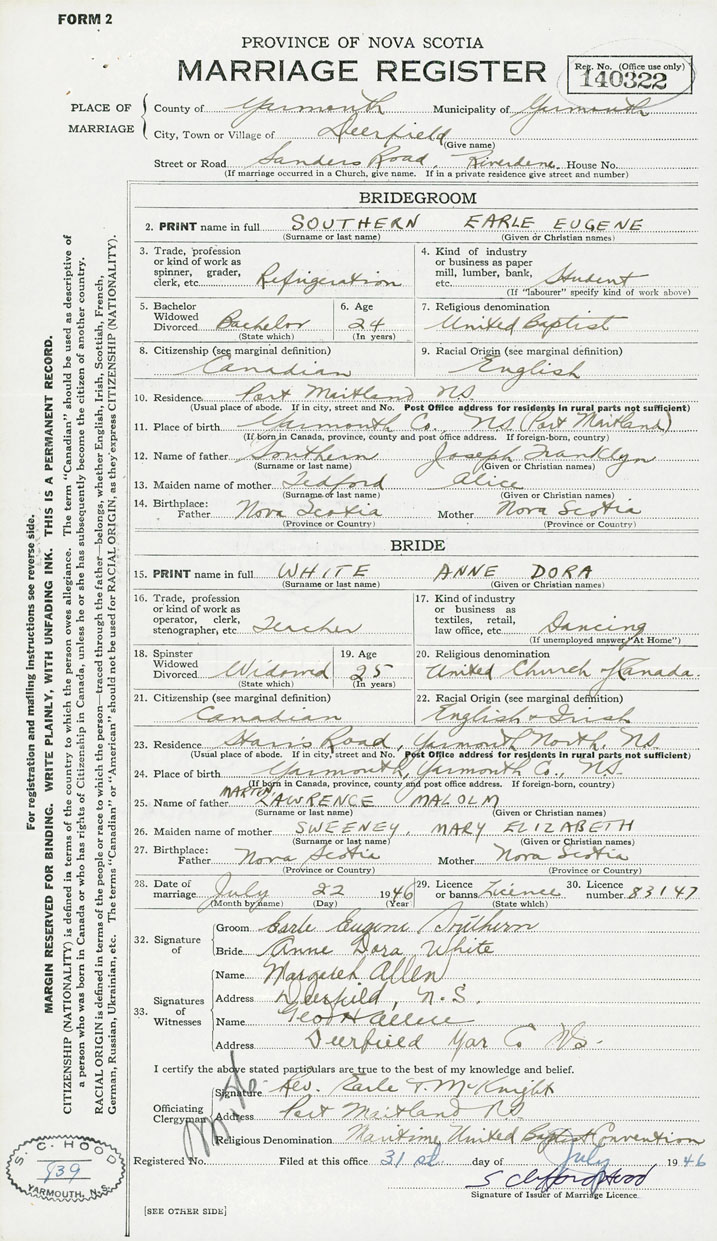 FORM 2
PROVINCE OF NOVA SCOTIA
MARRIAGE REGISTER
Reg. No. (Office use only)
140322
PLACE OF MARRIAGE
County of Yarmouth Municipality of Yarmouth
City, Town or Village of Deerfield
(Give name)
Street or Road Sanders Road, Riverdene House No.
(If marriage occurred in a Church, give name. If in a private residence give street and number)
BRIDEGROOM
2. PRINT name in full SOUTHERN EARLE EUGENE
(Surname or last name) (Given or Christian names)
3. Trade, profession or kind of work as spinner, grader, clerk, etc. Refrigeration
4. Kind of industry or business as paper mill, lumber, bank, etc. Student
(If "labourer" specify kind of work above)
5. Bachelor Widowed Divorced Bachelor
(State which)
6. Age 24
(In years)
7. Religious denomination
United Baptist
8. Citizenship (see marginal definition)
Canadian
9. Racial Origin (see marginal definition)
English
10. Residence Port Maitland N.S.
(Usual place of abode. If in city, street and No. Post Office address for residents in rural parts not sufficient)
11. Place of birth Yarmouth Co., N.S. (Port Maitland)
(If born in Canada, province, county and post office address. If foreign-born, country)
12. Name of father Southern Joseph Franklyn
(Surname or last name) (Given or Christian names)
13. Maiden name of mother Tedford Alice
(Surname or last name) (Given or Christian names)
14. Birthplace: Father Nova Scotia Mother Nova Scotia
(Province or Country) (Province or Country)
BRIDE
15. PRINT name in full WHITE ANNE DORA
(Surname or last name) (Given or Christian names)
16. Trade, profession or kind of work as operator, clerk, stenographer, etc. Teacher
17. Kind of industry or business as textiles, retail, law office, etc. Dancing
(If unemployed answer, "At Home")
18. Spinster Widowed Divorced Widowed
(State which)
19. Age 25
(In years)
20. Religious denomination
United Church of Canada.
21. Citizenship (see marginal definition)
Canadian
22. Racial Origin (see marginal definition)
English & Irish
23. Residence Road, Yarmouth North, N.S.
(Usual place of abode. If in city, street and No. Post Office address for residents in rural parts not sufficient)
24. Place of birth Yarmouth, Yarmouth Co., N.S.
(If born in Canada, province, county and post office address. If foreign-born, country)
25. Name of father MARTIN, LAWRENCE MALOLM
(Surname or last name) (Given or Christian names)
26. Maiden name of mother SWEENEY, MARY ELIZABETH
(Surname or last name) (Given or Christian names)
27. Birthplace: Father Nova Scotia Mother Nova Scotia
(Province or Country) (Province or Country)
28. Date of marriage July 22 1946
(Month by name) (Day) (Year)
29. Licence or banns Licence
(State which)
30. Licence number 83147
32. Signature of
Groom Earle Eugene Southern
Bride Anne Dora White
33. Signatures of Witnesses
Name Margaret Allen
Address Deerfield, N.S.
Name Geo H Allen
Address Deerfield Yar Co NS.
I certify the above stated particulars are true to the best of my knowledge and belief.
Officiating Clergyman
Signature Rev. Earle T. McKnight
Address Port Maitland NS
Religious Denomination Maritime United Baptist Convention
Registered No. Filed at this office 31 st day of July 1946
S Clifford Hood
Signature of Issuer of Marriage Licence
[SEE OTHER SIDE]
S. C. HOOD
839
YARMOUTH, N.S.
For registration and mailing instructions see reverse side.
MARGIN RESERVED FOR BINDING. WRITE PLAINLY, WITH UNFADING INK. THIS IS A PERMANENT RECORD.
CITIZENSHIP (NATIONALITY) is defined in terms of the country to which the person owes allegiance. The term "Canadian" should be used as descriptive of
a person who was born in Canada or who has rights of Citizenship in Canada, unless he or she has subsequently become the citizen of another country.
RACIAL ORIGIN is defined in terms of the people or race to which the person—traced through the father—belongs, whether English, Irish, Scottish, French,
German, Russian, Ukrainian, etc. The terms "Canadian" or "American" should not be used for RACIAL ORIGIN, as they express CITIZENSHIP (NATIONALITY).